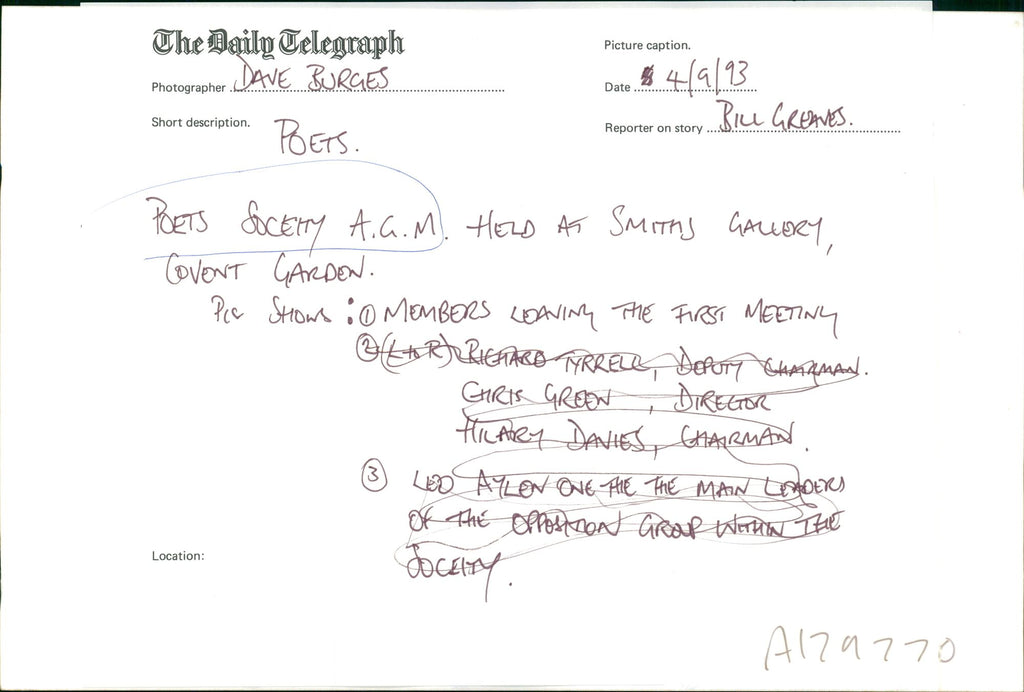 The Daily Telegraph
Picture caption.
Photographer DAVE BURGES
Date 4/9/93
Short description.
POETS.
Reporter on story BILL GREAVES.
POETS SOCEITY A.G.M. HELD AT SMITHS GALLERY,
COVENT GARDEN.
PIC SHOWS: ① MEMBERS LEAVING THE FIRST MEETING
② (L to R) RICHARD TYRRELL, DEPUTY CHAIRMAN.
CHRIS GREEN, DIRECTOR
HILARY DAVIES, CHAIRMAN.
③ LEO AYLEN ONE THE THE MAIN LEADERS
OF THE OPPOSITION GROUP WITHIN THE
SOCEITY.
Location:
A179770